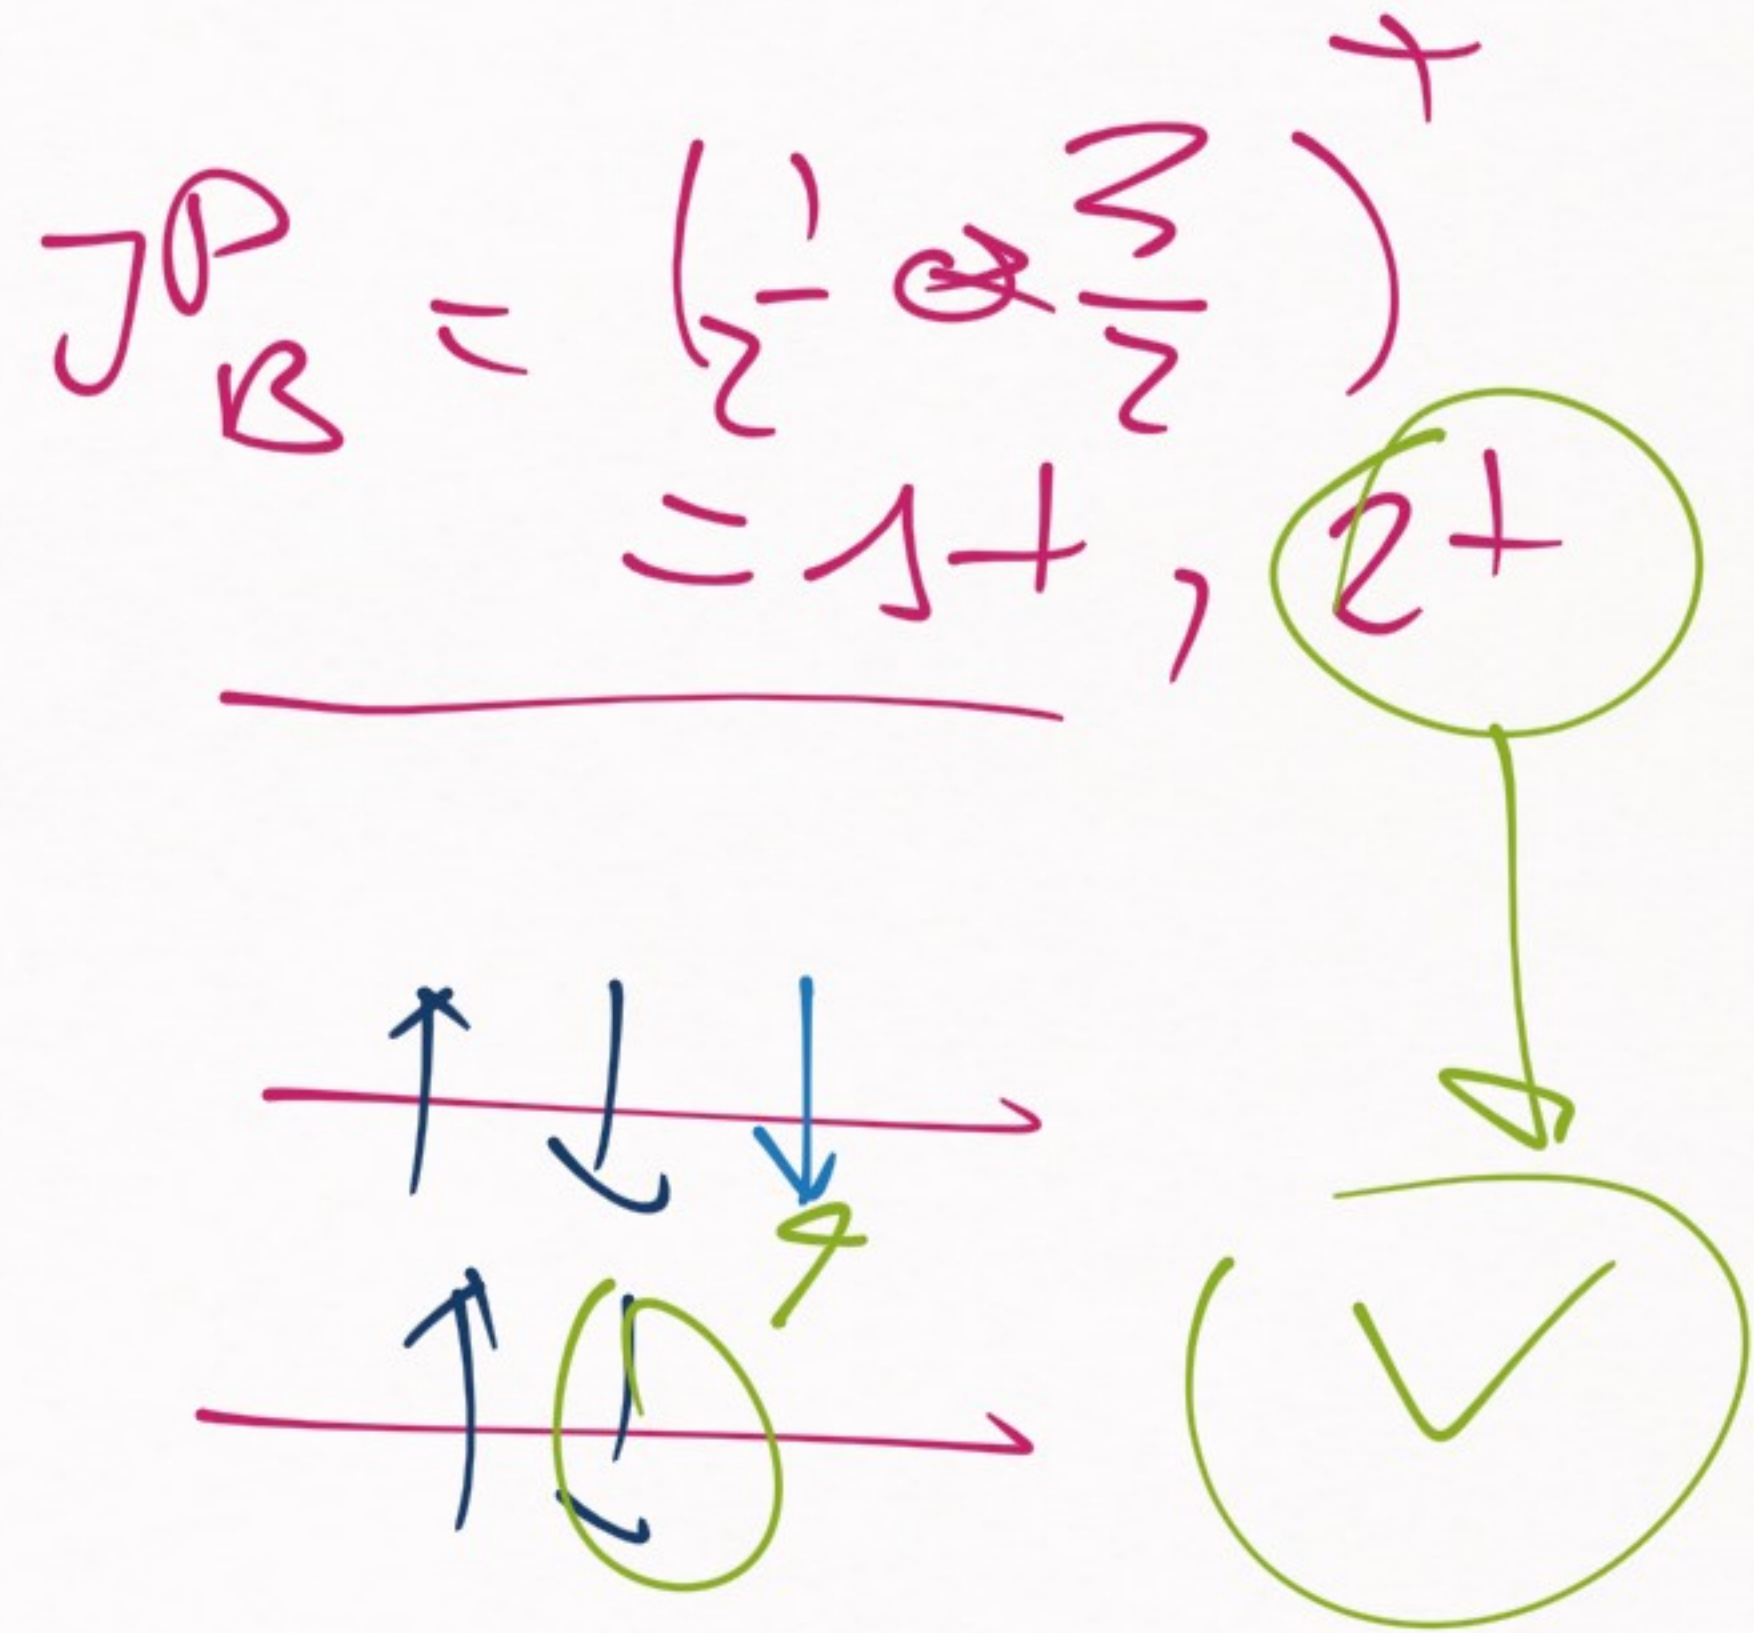 J^P_B = (1/2 ⊗ 3/2)^+
= 1+, 2+